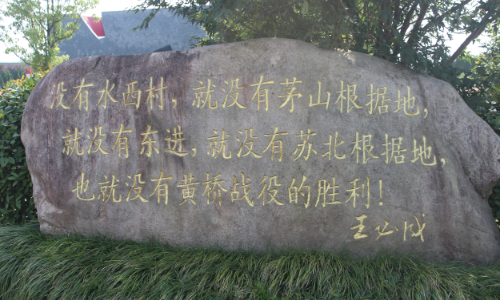 没有水西村，就没有茅山根据地，
就没有东进，就没有苏北根据地，
也就没有黄桥战役的胜利！
王必成